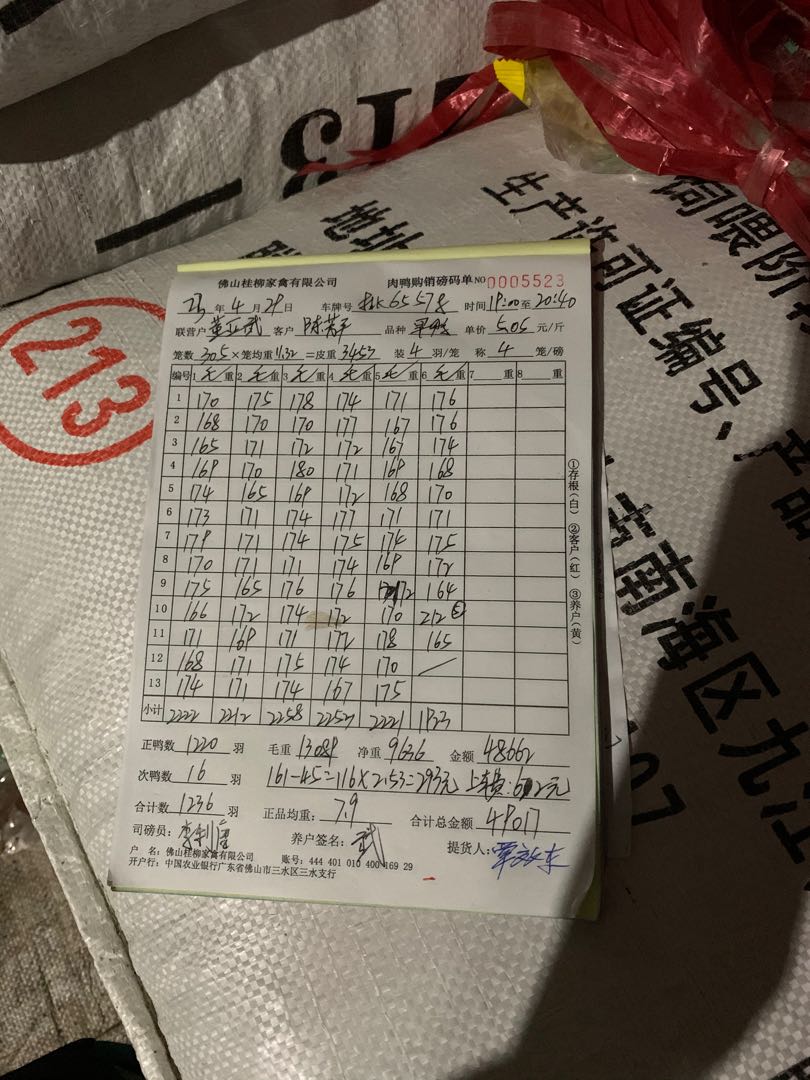 13
饲喂阶
生产许可证编号、产品
地址
南海区九江
107
213
佛山桂柳家禽有限公司 肉鸭购销磅码单 NO 0005523
23年4月29日 车牌号 桂K65578 时间 19:00至20:40
联营户 客户 陈 品种 单价 5.05 元/斤
笼数 305×笼均重 11.32=皮重 3453 装 4 羽/笼 称 4 笼/磅
编号 1 毛重 2 毛重 3 毛重 4 毛重 5 毛重 6 毛重 7 重 8 重
1 170 175 178 174 171 176
2 168 170 170 177 167 176
3 165 171 172 172 167 174
4 169 170 180 171 169 168
5 174 165 169 172 168 170
6 173 171 174 177 171 171
7 179 171 174 175 174 175
8 170 171 171 174 169 172
9 175 165 176 176 172 164
10 166 172 174 172 170 212⑤
11 171 169 171 172 178 165
12 168 171 175 174 170 /
13 174 171 174 167 175
小计 2222 2212 2258 2253 2221 1923
正鸭数 1220 羽 毛重 13089 净重 9636 金额 48662
次鸭数 16 羽 161-45=116×2.53=293元 上车费:62元
合计数 1236 羽 正品均重: 7.9 合计总金额 49017
司磅员: 李 养户签名: 武 提货人: 覃 东
户 名: 佛山桂柳家禽有限公司 账号: 444 401 010 400 169 29
开户行: 中国农业银行广东省佛山市三水区三水支行
①存根(白) ②客户(红) ③养户(黄)